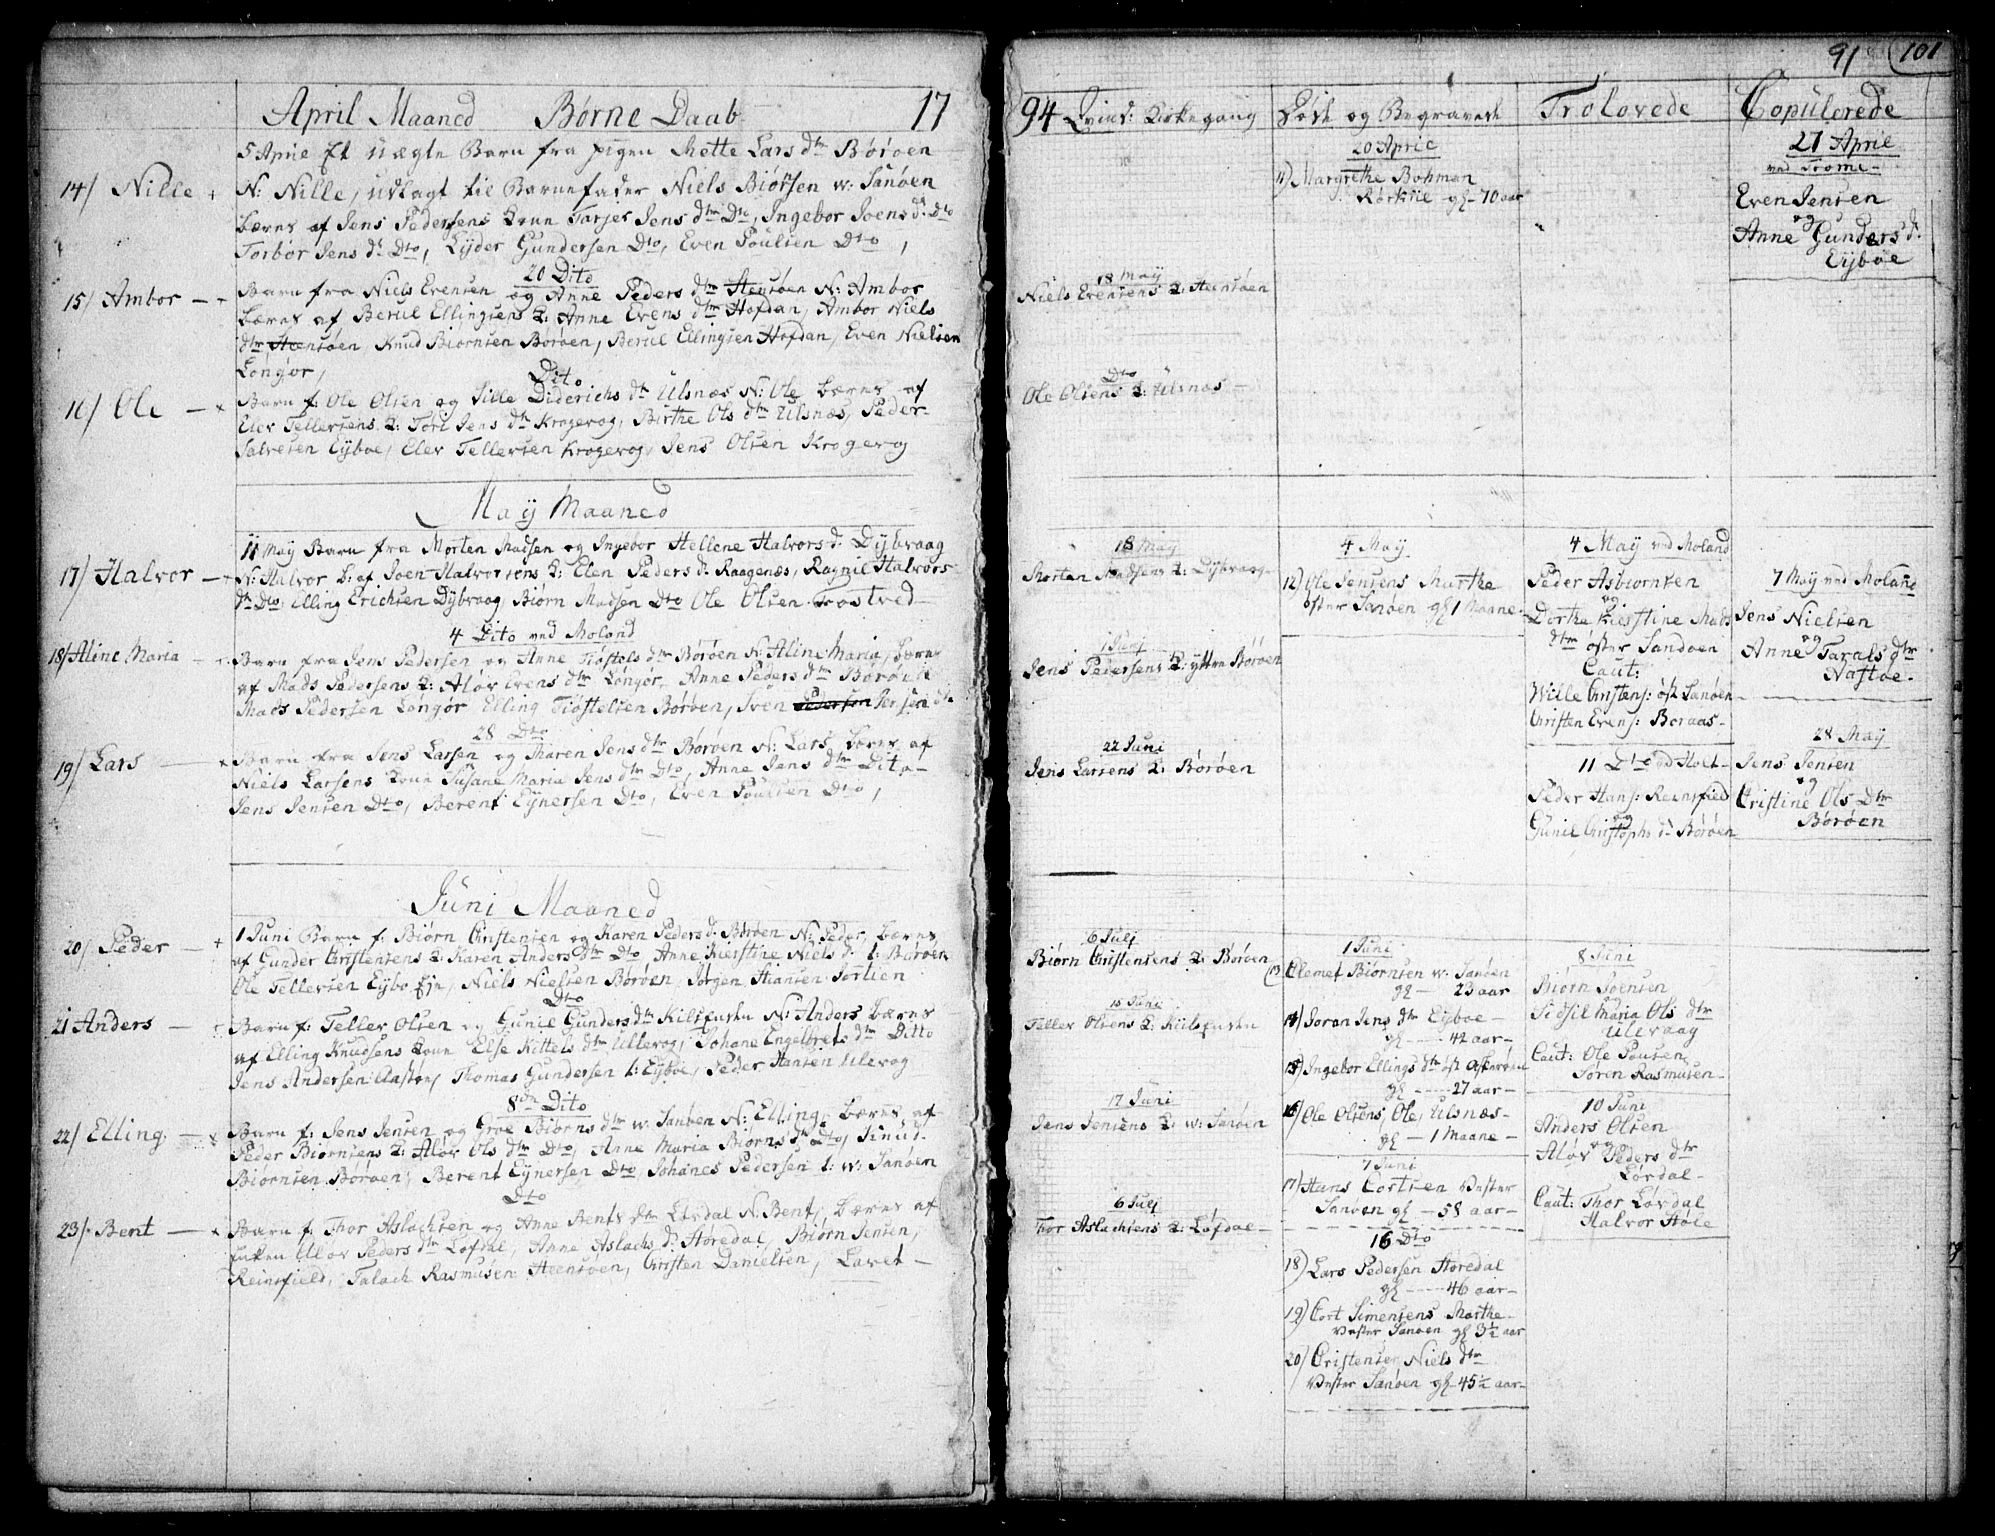 91 101
April Maaned Børne Daab 17
5 April Et uægte Barn fra pigen Mette Lars dtr Børøen
14/ Nille
N: Nille, udlagt til Barnefader Niels Biørsen w: Sanøen
bæres af Jens Pedersens Koune Tarjer Jens dtr Dto, Ingebor Joens d: Dto
Torbør Jens dr Dto, Lyder Gundersen Dto, Even Poulsen Dto,
20 Dito
15/ Ambor
Barn fra Niels Evensen og Anne Peders dtr Heensøen N: Ambor
bæres af Berul Ellingsens K: Anne Evens dtr Hofdan, Ambor Niels
dtr Heensøen Knud Biørnsen Børøen, Berul Ellingsen Hofdan, Even Nielsen
Longør,
Dito
16/ Ole
Barn f: Ole Olsen og Sille Diderichs dtr Ulsnæs N: Ole bæres af
Elev Tellefsens K: Tori Jens dtr Krogevog, Birthe Ols dtr Ulsnæs, Peder
Salvesen Eyboe, Elev Tellersen Krogevog, Jens Olsen Krogevog
May Maaned
11 May Barn fra Morten Madsen og Ingebor Hellene Halvors d: Dybvaag
17/ Halvor
N: Halvor b: af Joen Halvorsens K: Elen Peders d: Raagenæs, Ragnil Halvors
dtr Dto, Elling Erichsen Dybvaag Biørn Madsen Dto Ole Olsen Tostved
4 Dito ved Moland
18/ Aline Maria
Barn fra Jens Pedersen og Anne Tiøstels dtr Børøen N: Aline Maria, bæres
af Mads Pedersens K: Aløv Evens dtr Longør, Anne Peders dtr Børøen
Mads Pedersen Longør Elling Tiøstelsen Børøen, Iven Pedersen
28 Dto
19/ Lars
Barn fra Jens Larsen og Maren Jens dtr Børøen N: Lars bæres af
Niels Larsens Koun Susane Maria Jens dtr Dto, Anne Jens dtr Dito
Jens Jensen Dto, Berent Eynersen Dto, Even Poulsen Dto,
Juni Maaned
1 Juni Barn f: Biørn Christensen og Karen Peders d: Børøen N: Peder, bæres
20/ Peder
af Gunder Christensens K: Karen Anders dtr Dto, Anne Kierstine Niels d: l: Børøen
Ole Tellersen Eybo, Niels Nielsen Børøen, Jørgen Stiansen Sørlien
Dto
21 Anders
Barn f: Teller Olsen og Gunil Gunders dtr Kilsfusten N: Anders bæres
af Elling Knudsens Koun Else Kittels dtr Ullevog, Johane Engelbrets dtr Ditto
Jens Andersen, Thomas Gundersen l: Eyboe, Peder Hansen Ulevog
8de Dito
22/ Elling
Barn f: Jens Jensen og Groe Biørns dtr w: Sanøen N: Elling, bæres af
Peder Biørnsens K: Aløv Ols dtr Dto, Anne Maria Biørns dtr Dto, Knud
Biørnsen Børøen, Berent Eynersen Dto, Johanes Pedersen l: w: Sanøen
Dto
23/ Bent
Barn f: Thor Aslachsen og Anne Bents dtr Løvdal N: Bent, bæres af
Enken Aløv Peders dtr Løfdal, Anne Aslachs d: Høredal, Biørn Jensen,
Reinsfield, Talach Rasmusen Heensøen, Christen Danielsen, Lavet
94 Qvind: Kirkegang
18 May
Niels Evensens K: Heensøen
Dto
Ole Olsens K: Ulsnæs
18 May
Morten Madsens K: Dybvaag
1 Juni
Jens Pedersens K: yttre Børøen
22 Juni
Jens Larsens K: Børøen
6 Julj
Biørn Christensens K: Børøen
15 Juni
Teller Olsens K: Kiilsfusten
17 Juni
Jens Jensens K: w: Sanøen
6 Julj
Thor Aslachsens K: Løfdae
Døde og Begravede
20 April
11) Margrethe Bohman
Rørkiie gl 70 aar
4 May
12) Ole Jensens Marthe
øster Sanøen gl 1 Maane
1 Juni
13 Clemet Biørnsen w: Sanøen
gl 23 aar
14) Joran Jens dtr Eyboe
gl 42 aar
15) Ingebor Ellings dtr
gl 27 aar
16) Ole Olsens, Ole, Ulsnæs
gl 1 Maane
7 Juni
17) Hans Cortsen Vester
Sanøen gl 58 aar
16 Dto
18) Lars Pedersen Høredal
gl 46 aar
19) Cort Simensens Marthe
Vester Sanøen gl 3½ aar
20) Christense Niels dtr
Vester Sanøen gl 45½ aar
Trolovede
4 May ved Moland
Peder Asbiørnsen
og
Dorthe Kierstine Mads
dtr øster Sandøen
Caut:
Wille Christens: øst Sanøen
Christen Evens: Boraas
11 Dto ved Holt
Peder Hans: Reinsfield
og
Gunil Christophs dr Børøen
8 Juni
Biørn Joensen
Sidsil Maria Ols dtr
Ulevaag
Caut: Ole Pousen
Søren Rasmusen
10 Juni
Anders Olsen
og
Aløv Peders dtr
Løvdal
Caut: Thor Løvdal
Halvor Høie
Copulerede
27 April
ved Trome
Even Jensen
og
Anne Gunders d:
Eyboe
7 May ved Moland
Jens Nielsen
og
Anne Tarals dtr
Nastøe
28 May
Jens Jensen
og
Christine Ols Dtr
Børøen